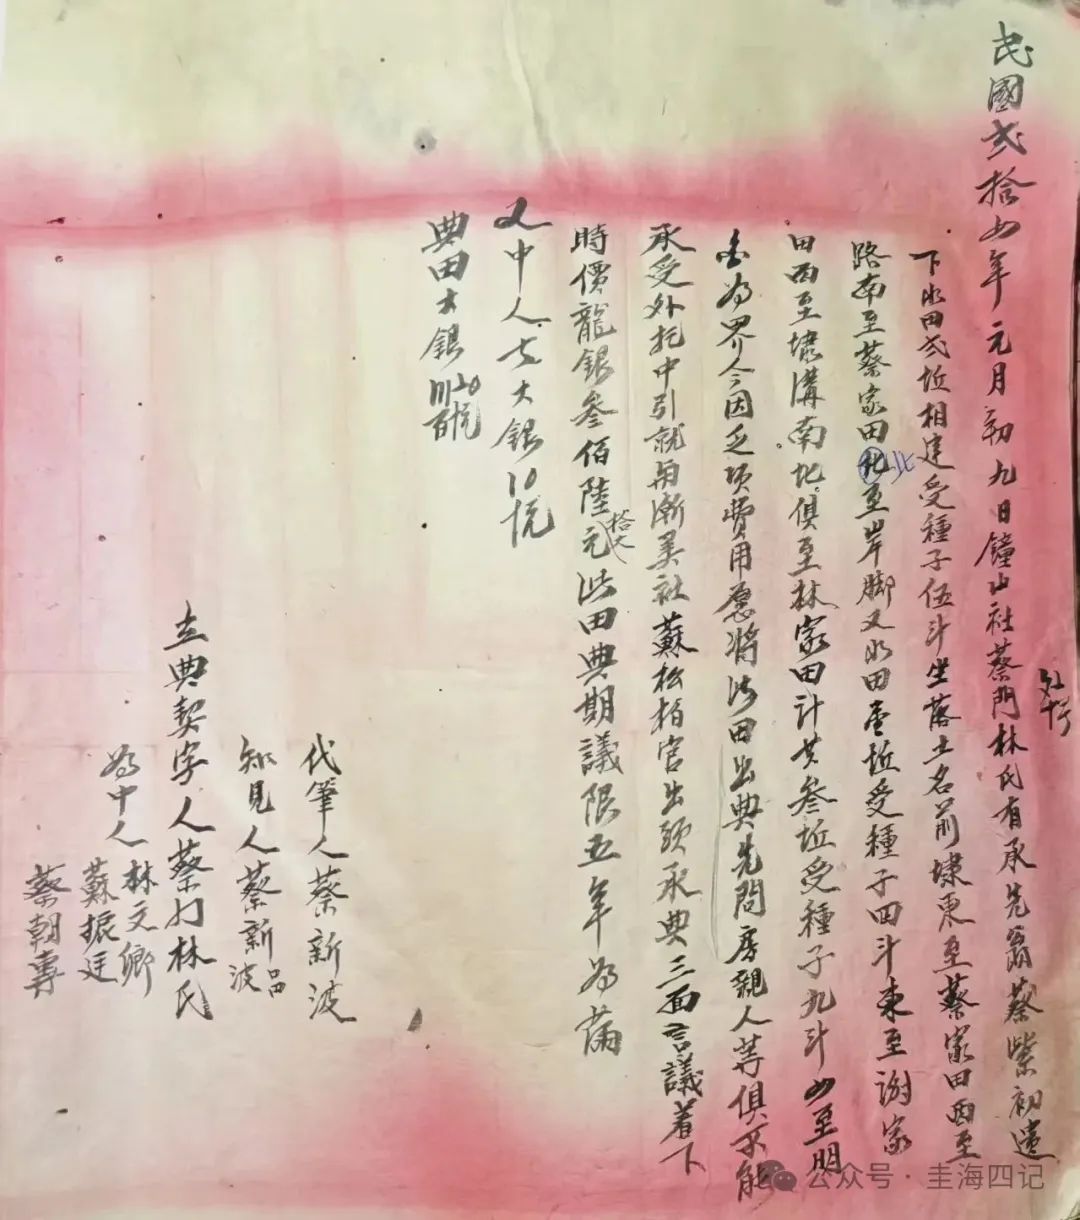 民國弍拾四年元月初九日鐘山社蔡門林氏有承先翁蔡紫初遺
下水田弍坵相連受種子伍斗坐落土名前埭東至蔡家田西至
路南至蔡家田北至岸脚又水田壹坵受種子四斗東至謝家
田西至埭溝南北俱至林家田計共叁坵受種子九斗四至明
白為界今因乏項費用愿將此田出典先問房親人等俱不能
承受外托中引就與漸美社蘇松栢官出頭承典三面言議着下
時價龍銀叁佰陸拾大元此田典期議限五年為滿
又中人去大銀10忨
典田大銀
代筆人蔡新波
知見人蔡新波
立典契字人蔡门林氏
為中人林文卿
蘇振廷
蔡朝壽
公众号·圭海四记